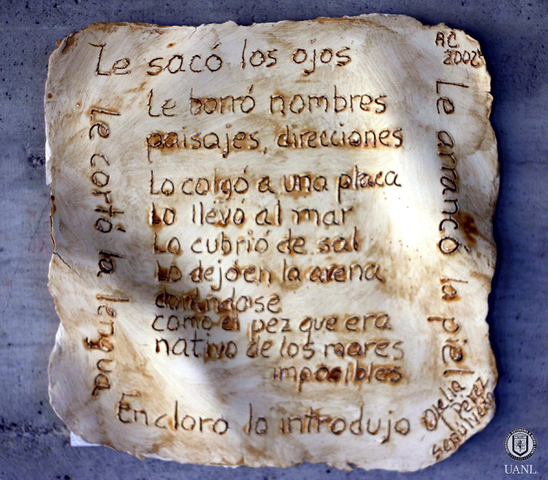 Le sacó los ojos
AC
2002
Le borró nombres
paisajes, direcciones
Lo colgó a una placa
Lo llevó al mar
Lo cubrió de sal
Lo dejó en la arena
dorándose
como el pez que era
nativo de los mares
imposibles
Le cortó la lengua
Le arrancó la piel
Encloro lo introdujo
Ofelia
Pérez
UANL